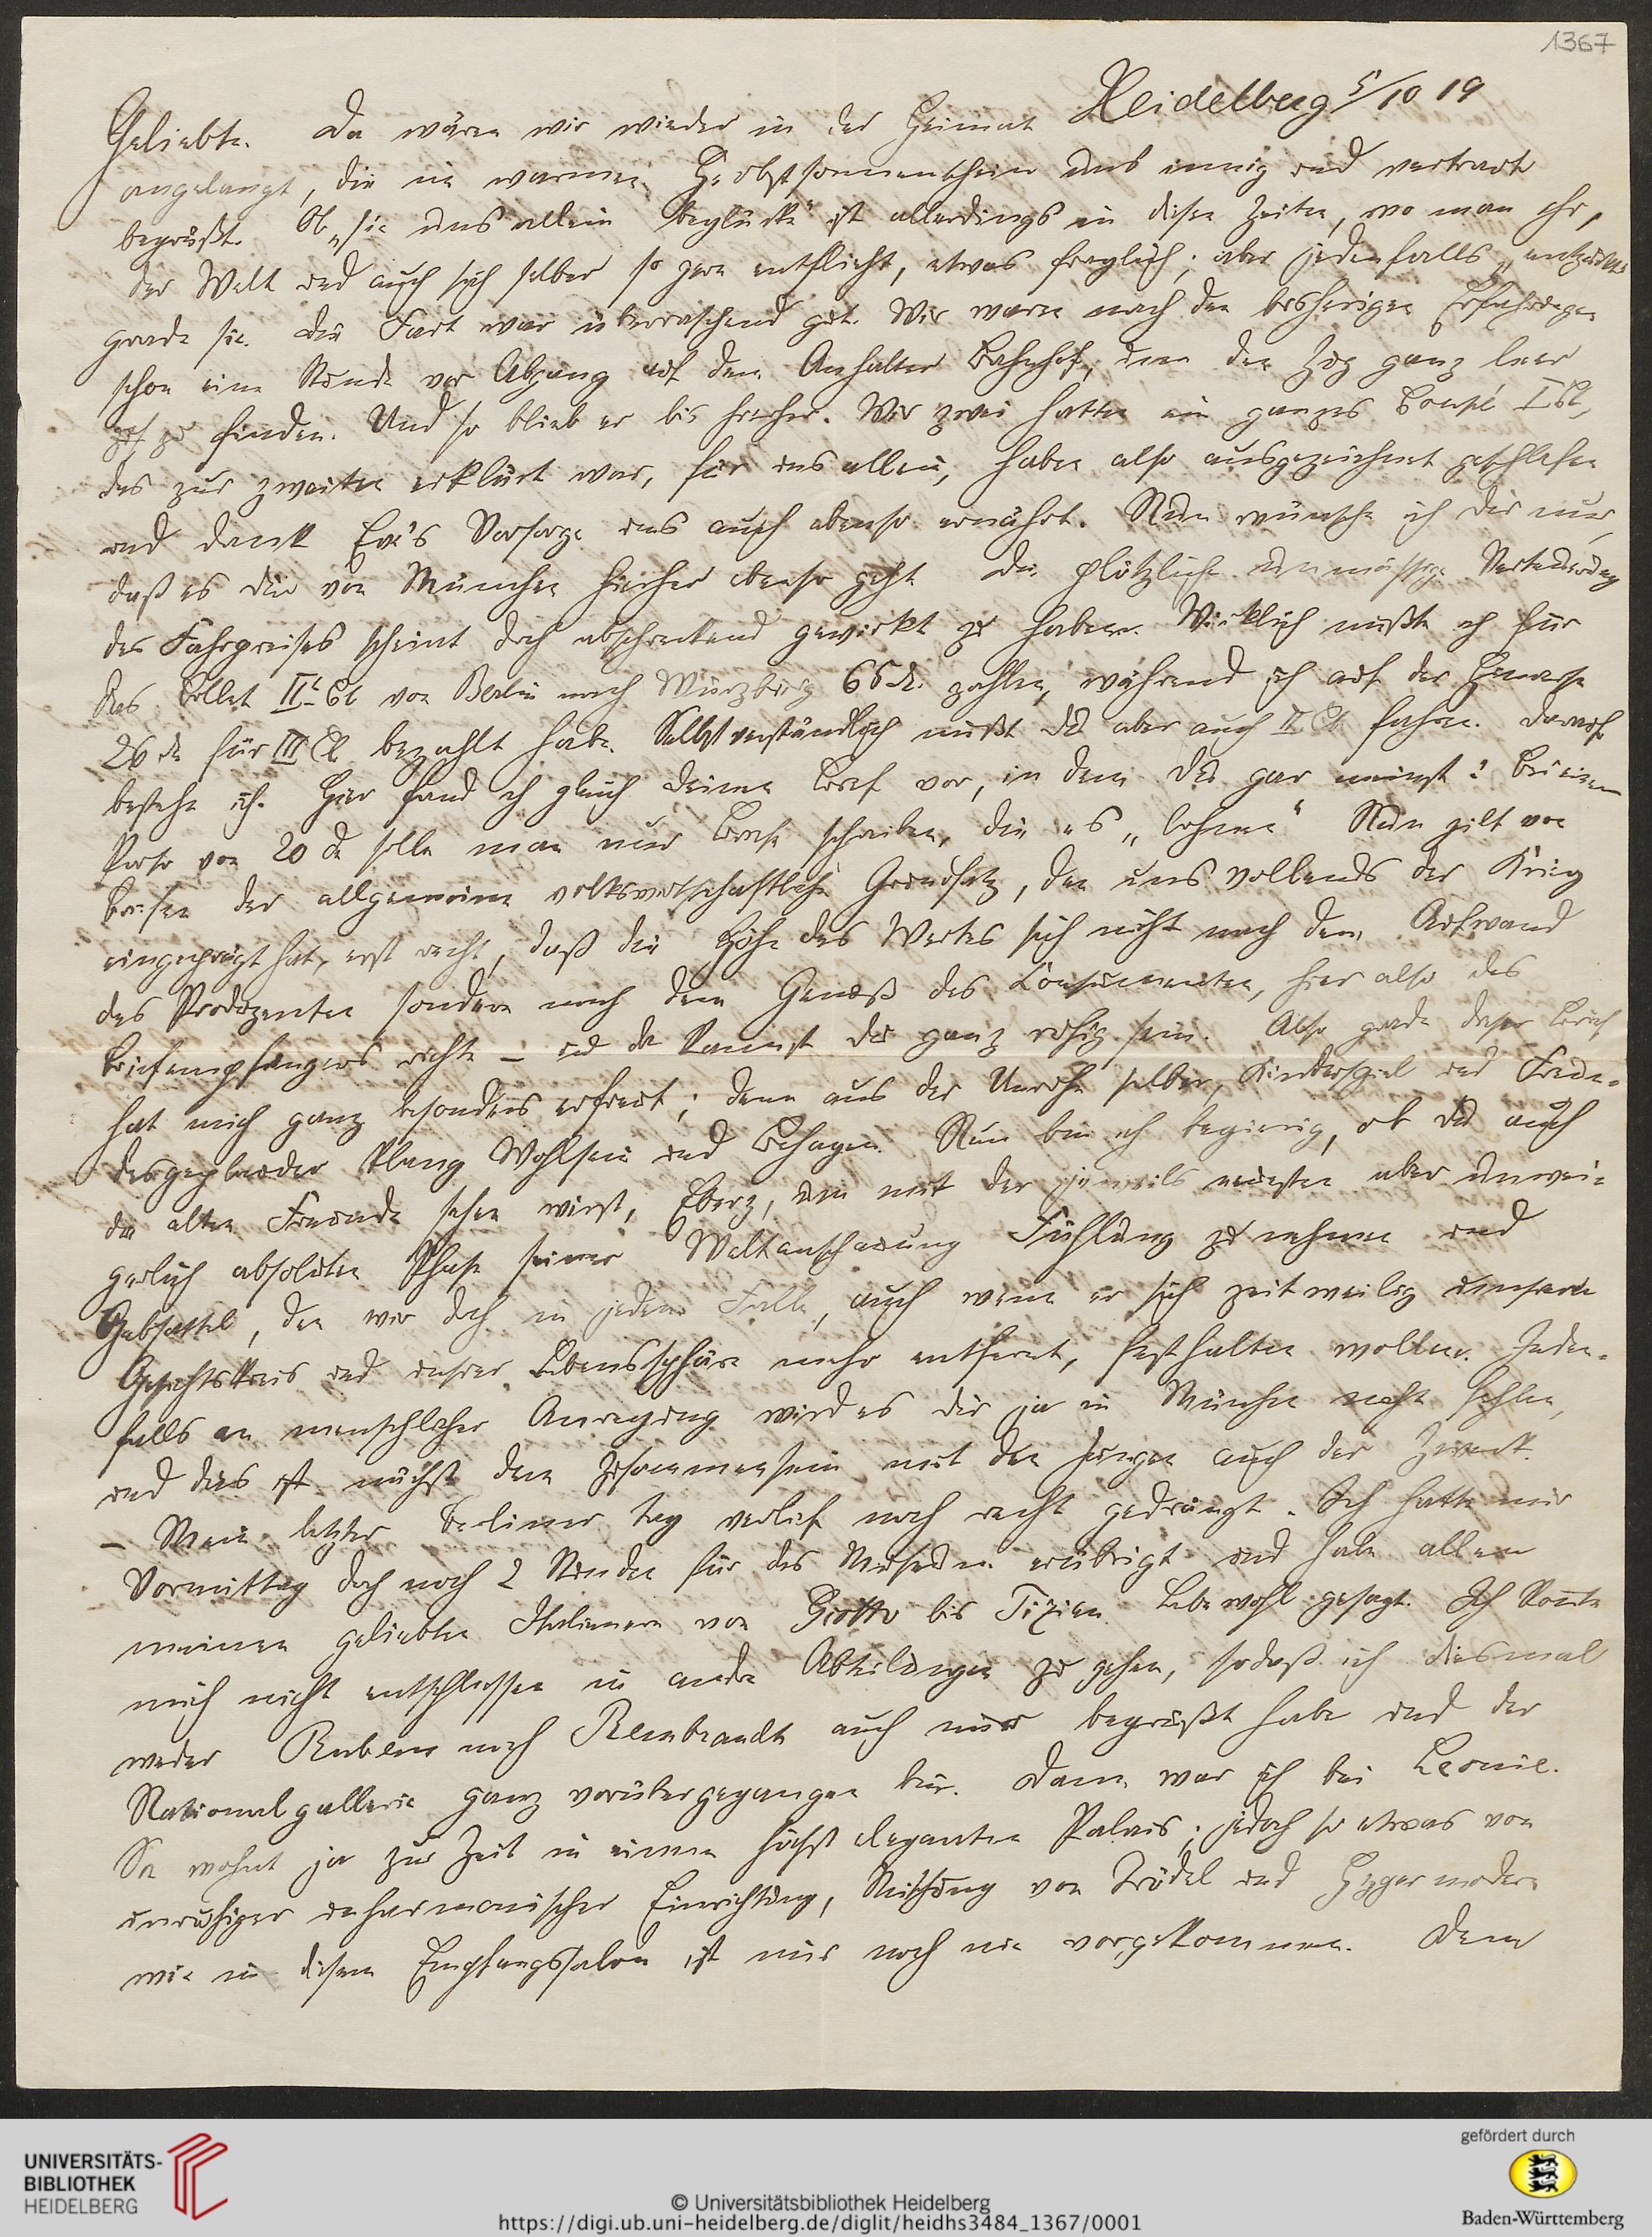 1367
Heidelberg 5/10 19
Geliebte. Da wären wir wieder in der Heimat
angelangt, die in warmem Herbstsonnenschein uns innig und vertraut
begrüßt. Ob „sie uns allein beglückt“ ist allerdings in diesen Zeiten, wo man ihr,
der Welt und auch sich selber so gern entflieht, etwas fraglich; aber jedenfalls
grade sie. Die Fart war überraschend gut. Wir waren nach den bisherigen Erfahrungen
schon eine Stunde vor Abgang auf dem Anhalter Bahnhof, um den Zug ganz leer
zu finden. Und so blieb er bis hierher. Wir zwei hatten ein ganzes Coupé I Cl,
das zur zweiten erklärt war, für uns allein, haben also ausgezeichnet geschlafen
und dank Eve's Vorsorge uns auch ebenso ernährt. Nun wünsche ich dir nur,
daß es dir von München hierher ebenso geht. Die plötzliche unmässige Verteuerung
des Fahrpreises scheint doch abschreckend gewirkt zu haben. Wirklich mußte ich für
das Billet II. Cl von Berlin nach Würzburg 66 M. zahlen, während ich auf der Hinreise
26 M für III Cl bezahlt habe. Selbstverständlich mußt du aber auch II Cl fahren. Darauf
bestehe ich. Hier fand ich gleich deinen Brief vor, in dem du gar meinst: Bei einem
Porto von 20 d solle man nur Briefe schreiben, die es „lohnen“ Nun gilt von
Briefen der allgemeine volkswirtschaftliche Grundsatz, den uns vollends der Krieg
eingeprägt hat, erst recht, daß die Höhe des Wertes sich nicht nach dem Aufwand
des Produzenten sondern nach dem Genuß des Consumenten, hier also des
Briefempfängers richte – und da kannst du ganz ruhig sein. Also grade dieser Brief
hat mich ganz besonders erfreut; denn aus der Unruhe selber, Kinderspiel und
klang Wohlsein und Behagen. Nun bin ich begierig, ob du auch
die alten Freunde sehen wirst, Eberz, um mit der jeweils neuesten aber unwei-
gerlich absoluten Phase seiner Weltanschauung Fühlung zu nehmen und
Gebsattel, den wir doch in jedem Falle, auch wenn er sich zeitweilig unserem
Gesichtskreis und unsrer Lebenssphäre mehr entfernt, festhalten wollen. Jeden-
falls an menschlicher Anregung wird es dir ja in München nicht fehlen,
und dies ist nächst dem Zusammensein mit den Jungen auch der Zweck.
– Mein letzter Berliner Tag verlief noch recht gedrängt. Ich hatte mir
Vormittag doch noch 2 Stunden für das Museum erübrigt und habe allen
meinen geliebten Italienern von Giotto bis Tizian Lebewohl gesagt. Ich konnte
mich nicht entschliessen in andre Abteilungen zu gehen, sodaß ich diesmal
weder Rubens noch Rembrandt auch nur begrüßt habe und der
Nationalgallerie ganz vorübergegangen bin. Dann war ich bei Leonie.
Sie wohnt ja zur Zeit in einem höchst eleganten Palais; jedoch so etwas von
unruhiger unharmonischer Einrichtung, Mischung von Trödel und Hypermodern
wie in diesem Empfangssalon ist mir noch nie vorgekommen. Dem
UNIVERSITÄTS-
BIBLIOTHEK
HEIDELBERG
© Universitätsbibliothek Heidelberg
https://digi.ub.uni-heidelberg.de/diglit/heidhs3484_1367/0001
gefördert durch
Baden-Württemberg